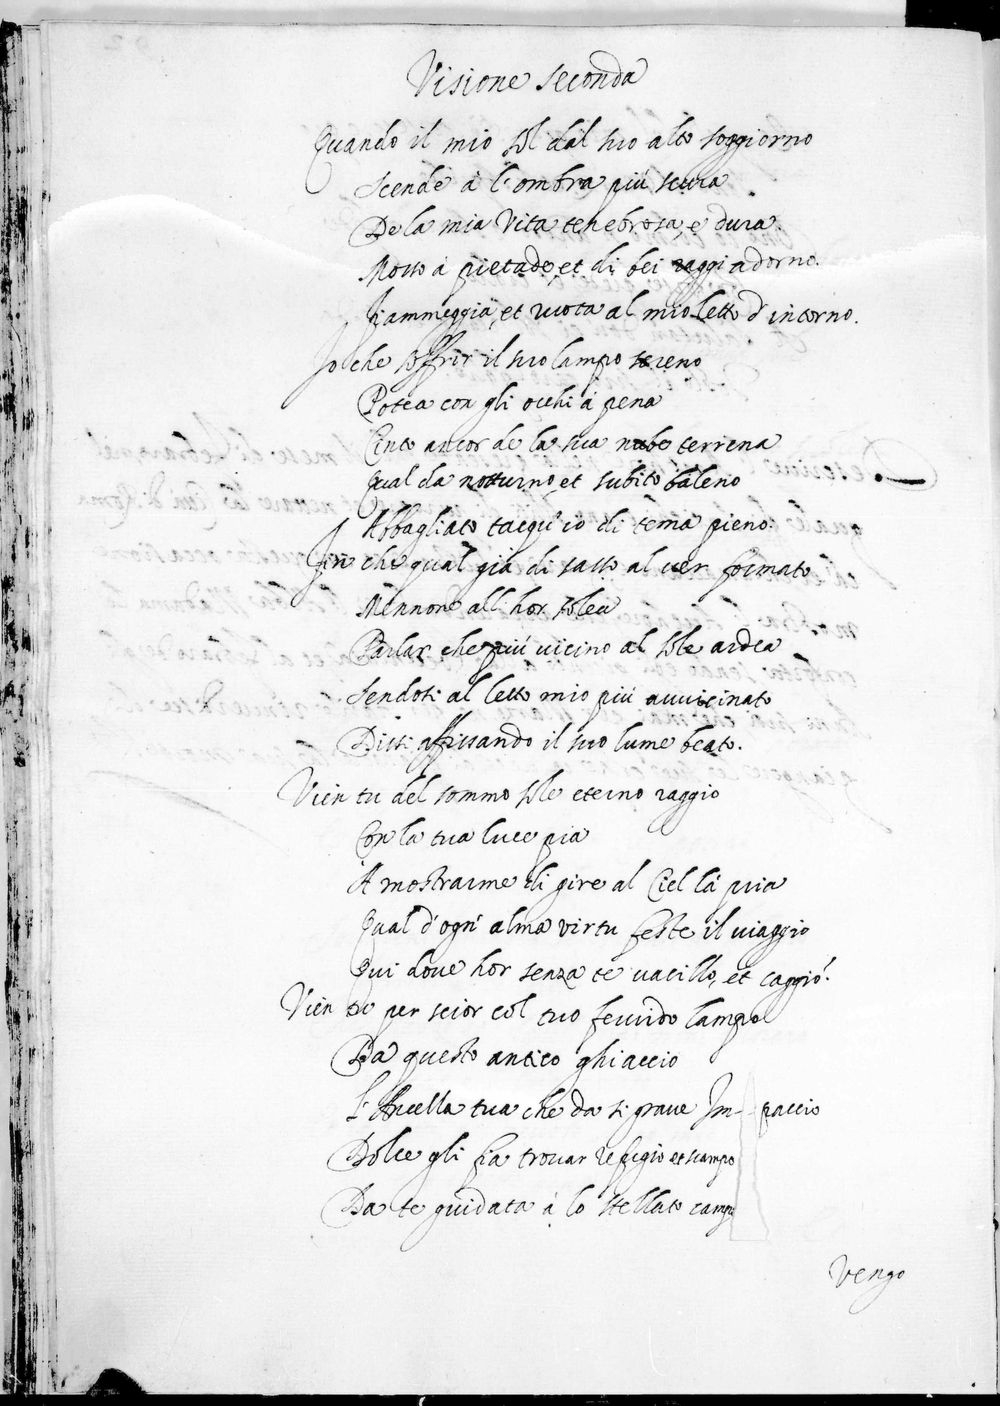 Visione seconda
Quando il mio sol dal suo alto soggiorno
Scende à l'ombra più scura
De la mia Vita tenebrosa, e dura.
Mosso à pietade, et di bei raggi adorno.
Fiammeggia, et ruota al mio letto d'intorno.
Io che soffrir il suo lampo sereno
Potea con gli occhi à pena
Cinto ancor de la sua nube terrena
Qual da notturno et subito baleno
Abbagliato tacqu'io di tema pieno:
Fin che qual già di sasso al ver formato
Mennone all'hor solea
Parlar che più vicino al sole ardea
Sendosi al letto mio più avvicinato
Dissi affissando il suo lume beato.
Vien tu del sommo sole eterno raggio
Con la tua luce pia
A mostrarme di gire al Ciel la via
Qual d'ogn' alma virtu feste il viaggio
Qui dove hor senza te vacillo, et caggio?
Vien tu per scior col tuo fervido lampo
Da questo antico ghiaccio
L'Ancella tua che da si grave Impaccio
Dolce gli fia trovar refugio et scampo
Da te guidata à lo stellato campo
Vengo